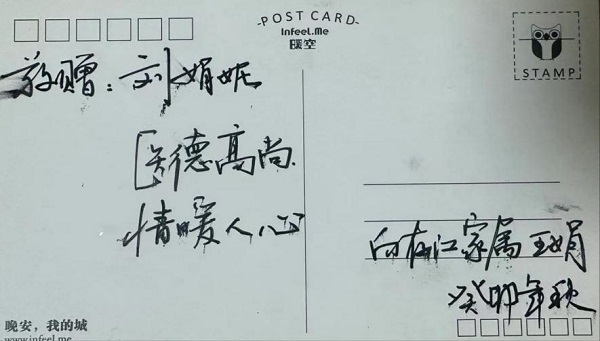 POST CARD
Infeel.Me
暖空
STAMP
敬赠：刘娟妮
医德高尚
情暖人心
白 江家属 王娟
癸卯年秋
晚安，我的城
www.infeel.me